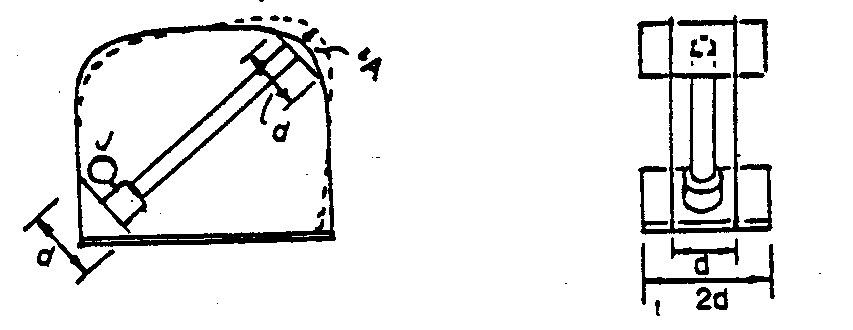 A
d
J
d
d
2d